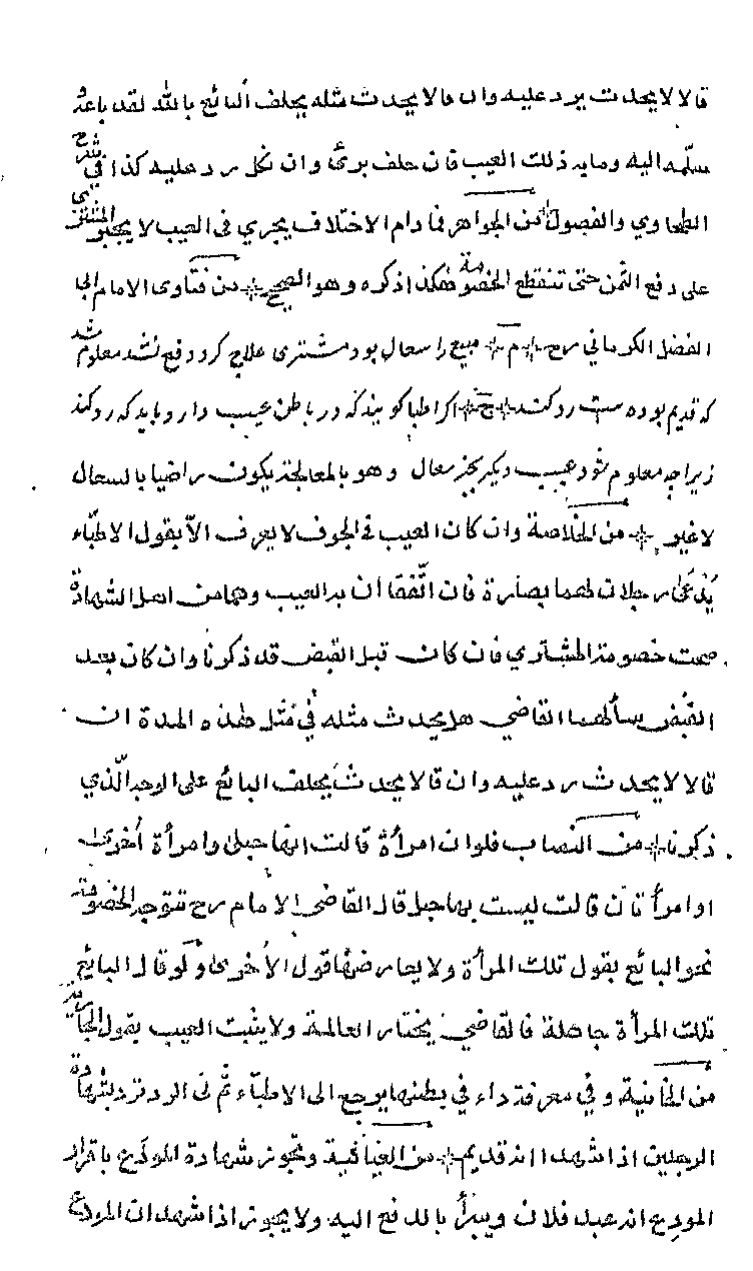 قالا لا يحدث يرد عليه وان قالا يحدث مثله يحلف البائع بالله لقد باعه
سلمه اليه وما به ذلك العيب فان حلف برئ وان نكل رد عليه كذا في شرح
الطحاوي والفصول من الجواهر فما دام الاختلاف يجري في العيب لا يجبر المشتري
على دفع الثمن حتى تنقطع الخصومة هكذا ذكره وهو الصحيح من فتاوى الامام
الفضل الكرماني رح م مبيع را سعال بود مشترى علاج كرد دفع نشد معلوم شد
كه قديم بوده ست رد كند ج اكر اطبا كويند كه در باطن عيب دارد بايد كه رد كند
زيرا چه معلوم شود عيب ديكر بجز سعال وهو بالمعالجة يكون راضيا بالسعال
لا غير من الخلاصة وان كان العيب في الجوف لا يعرف الا بقول الاطباء
رجلان لهما بصارة فان اتفقا ان به العيب وهما من اهل الشهادة
صحت خصومة المشتري فان كان قبل القبض قد ذكرنا وان كان بعد
القبض يسألهما القاضي هل يحدث مثله في مثل هذه المدة ان
قالا لا يحدث رد عليه وان قالا يحدث يحلف البائع على الوجه الذي
ذكرنا من النصاب فلو ان امرأة قالت انها حبلى وامرأة أخرى
او امرأتان قالت ليست بها حبل قال القاضي الامام رح تتوجه الخصومة
نحو البائع بقول تلك المرأة ولا يعارضها قول الأخرى ولو قال البائع
تلك المرأة جاهلة فالقاضي يختار العالمة ولا يثبت العيب بقول الجارية
من الخانية وفي معرفة داء في بطنها يرجع الى الاطباء ثم في الرد ترد بشهادة
الرجلين اذا شهدا انه قديم من الغياثية وتجوز شهادة المودَع باقرار
المودِع انه عبد فلان ويبرأ بالدفع اليه ولا يجوز اذا شهد ان المودع